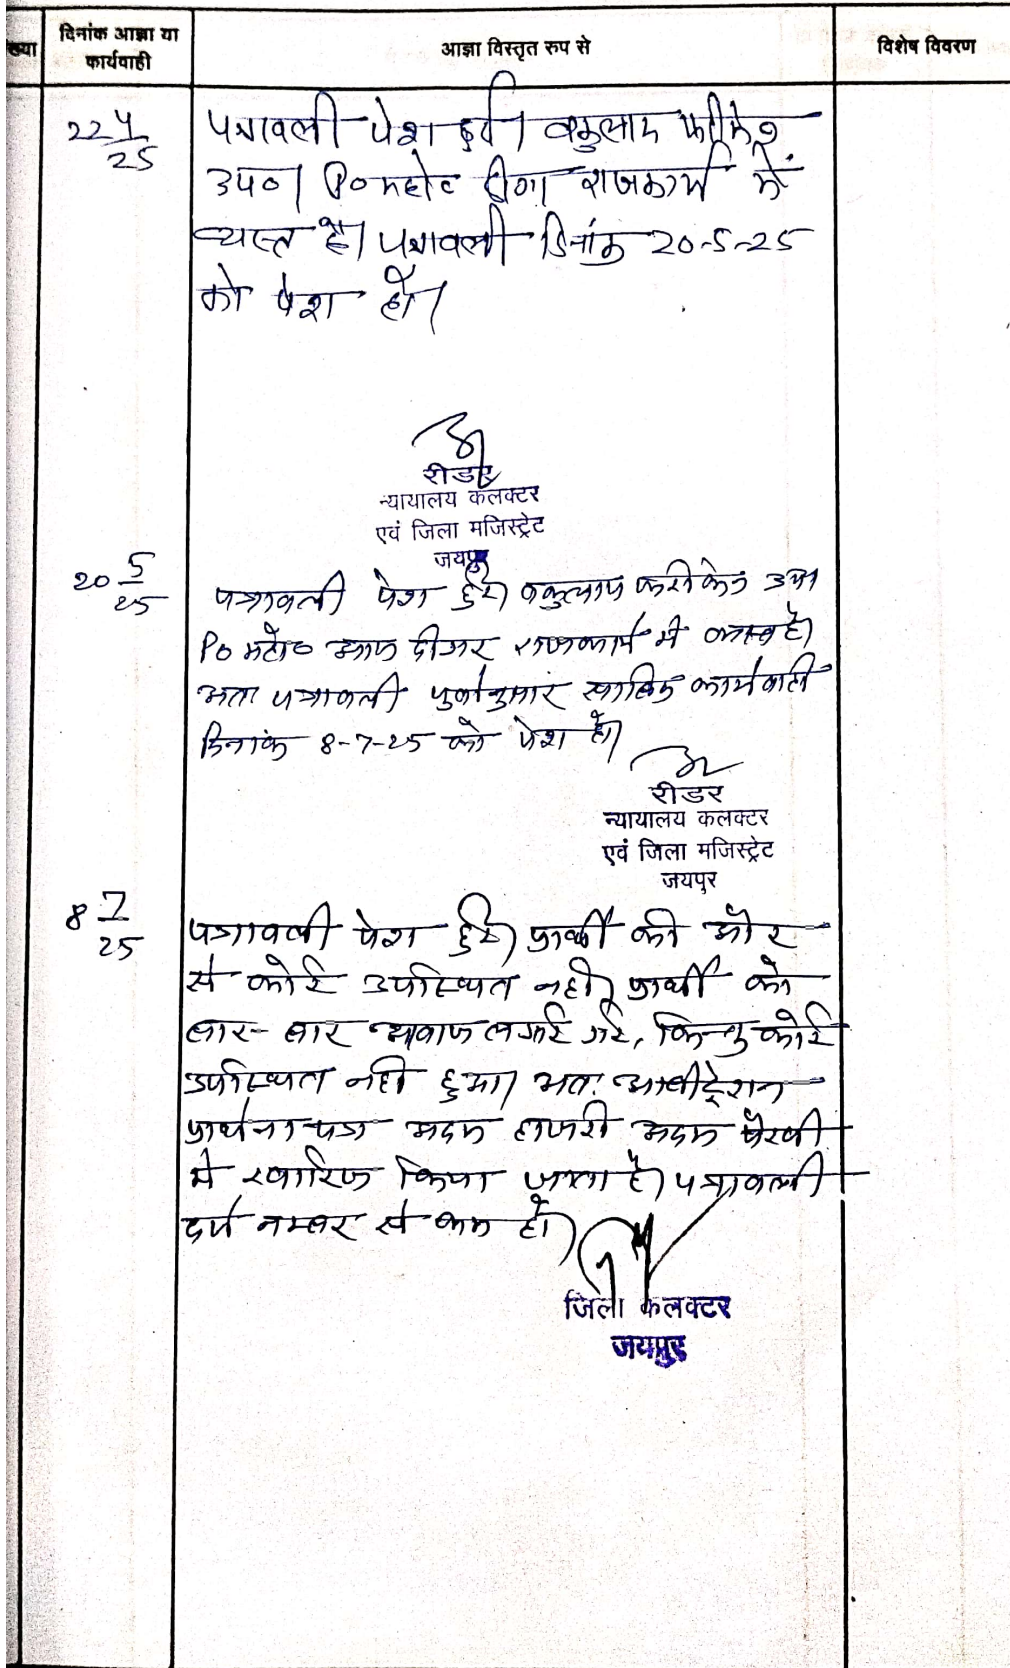 ख्या
दिनांक आज्ञा या
कार्यवाही
आज्ञा विस्तृत रुप से
विशेष विवरण
22 4/25
पत्रावली पेश हुई। वकुलाय फरीकेन
उप०। P० महो० दीगर राजकार्य में
व्यस्त है। पत्रावली दिनांक 20-5-25
को पेश हो।
रीडर
न्यायालय कलक्टर
एवं जिला मजिस्ट्रेट
जयपुर
20 5/25
पत्रावली पेश हुई। वकुलाय फरीकेन उप०
P० महो० आज दीगर राजकार्य में व्यस्त है।
अतः पत्रावली पुर्वानुसार साबिक कार्यवाही
दिनांक 8-7-25 को पेश हो।
रीडर
न्यायालय कलक्टर
एवं जिला मजिस्ट्रेट
जयपुर
8 7/25
पत्रावली पेश हुई। प्रार्थी की ओर
से कोई उपस्थित नही। प्रार्थी को
बार-बार आवाज लगाई गई, किन्तु कोई
उपस्थित नही हुआ। अतः आर्बीट्रेशन
प्रार्थना पत्र अदम हाजरी अदम पैरवी
मे खारिज किया जाता है। पत्रावली
दर्ज नम्बर से कम हो।
जिला कलक्टर
जयपुर